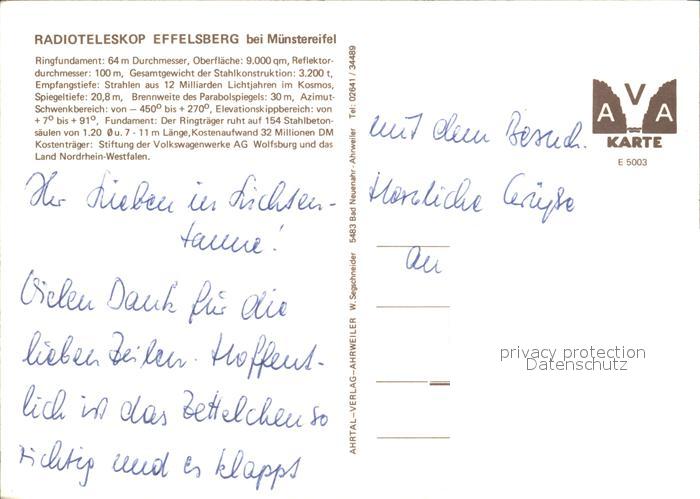 RADIOTELESKOP EFFELSBERG bei Münstereifel
Ringfundament: 64 m Durchmesser, Oberfläche: 9.000 qm, Reflektor-
durchmesser: 100 m, Gesamtgewicht der Stahlkonstruktion: 3.200 t,
Empfangstiefe: Strahlen aus 12 Milliarden Lichtjahren im Kosmos,
Spiegeltiefe: 20,8 m, Brennweite des Parabolspiegels: 30 m, Azimut-
Schwenkbereich: von — 450° bis + 270°, Elevationskippbereich: von
+ 7° bis + 91°, Fundament: Der Ringträger ruht auf 154 Stahlbeton-
säulen von 1.20 Ø u. 7 - 11 m Länge, Kostenaufwand 32 Millionen DM
Kostenträger: Stiftung der Volkswagenwerke AG Wolfsburg und das
Land Nordrhein-Westfalen.
Ihr Lieben in Lichten-
tanne!
Vielen Dank für die
lieben Zeilen. Hoffent-
lich ist das Zettelchen so
richtig und es klappt
AHRTAL–VERLAG–AHRWEILER W. Segschneider 5483 Bad Neuenahr - Ahrweiler Tel: 02641 / 34489
mit dem Besuch.
Herzliche Grüße
An
AVA
KARTE
E 5003
privacy protection
Datenschutz